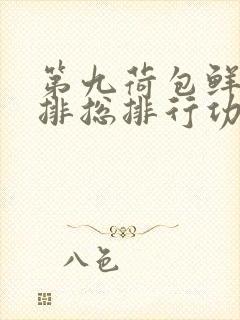 第九荷包鲜
排总排行功
八邑